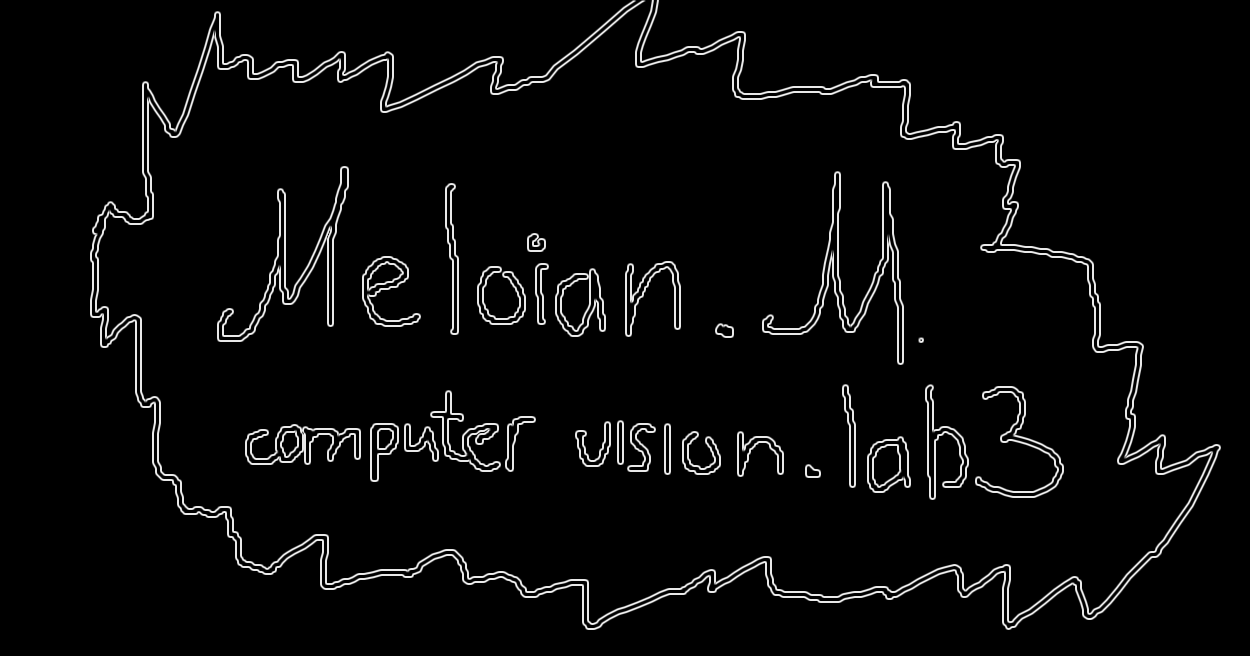 Meloian. M.
computer vision. lab3